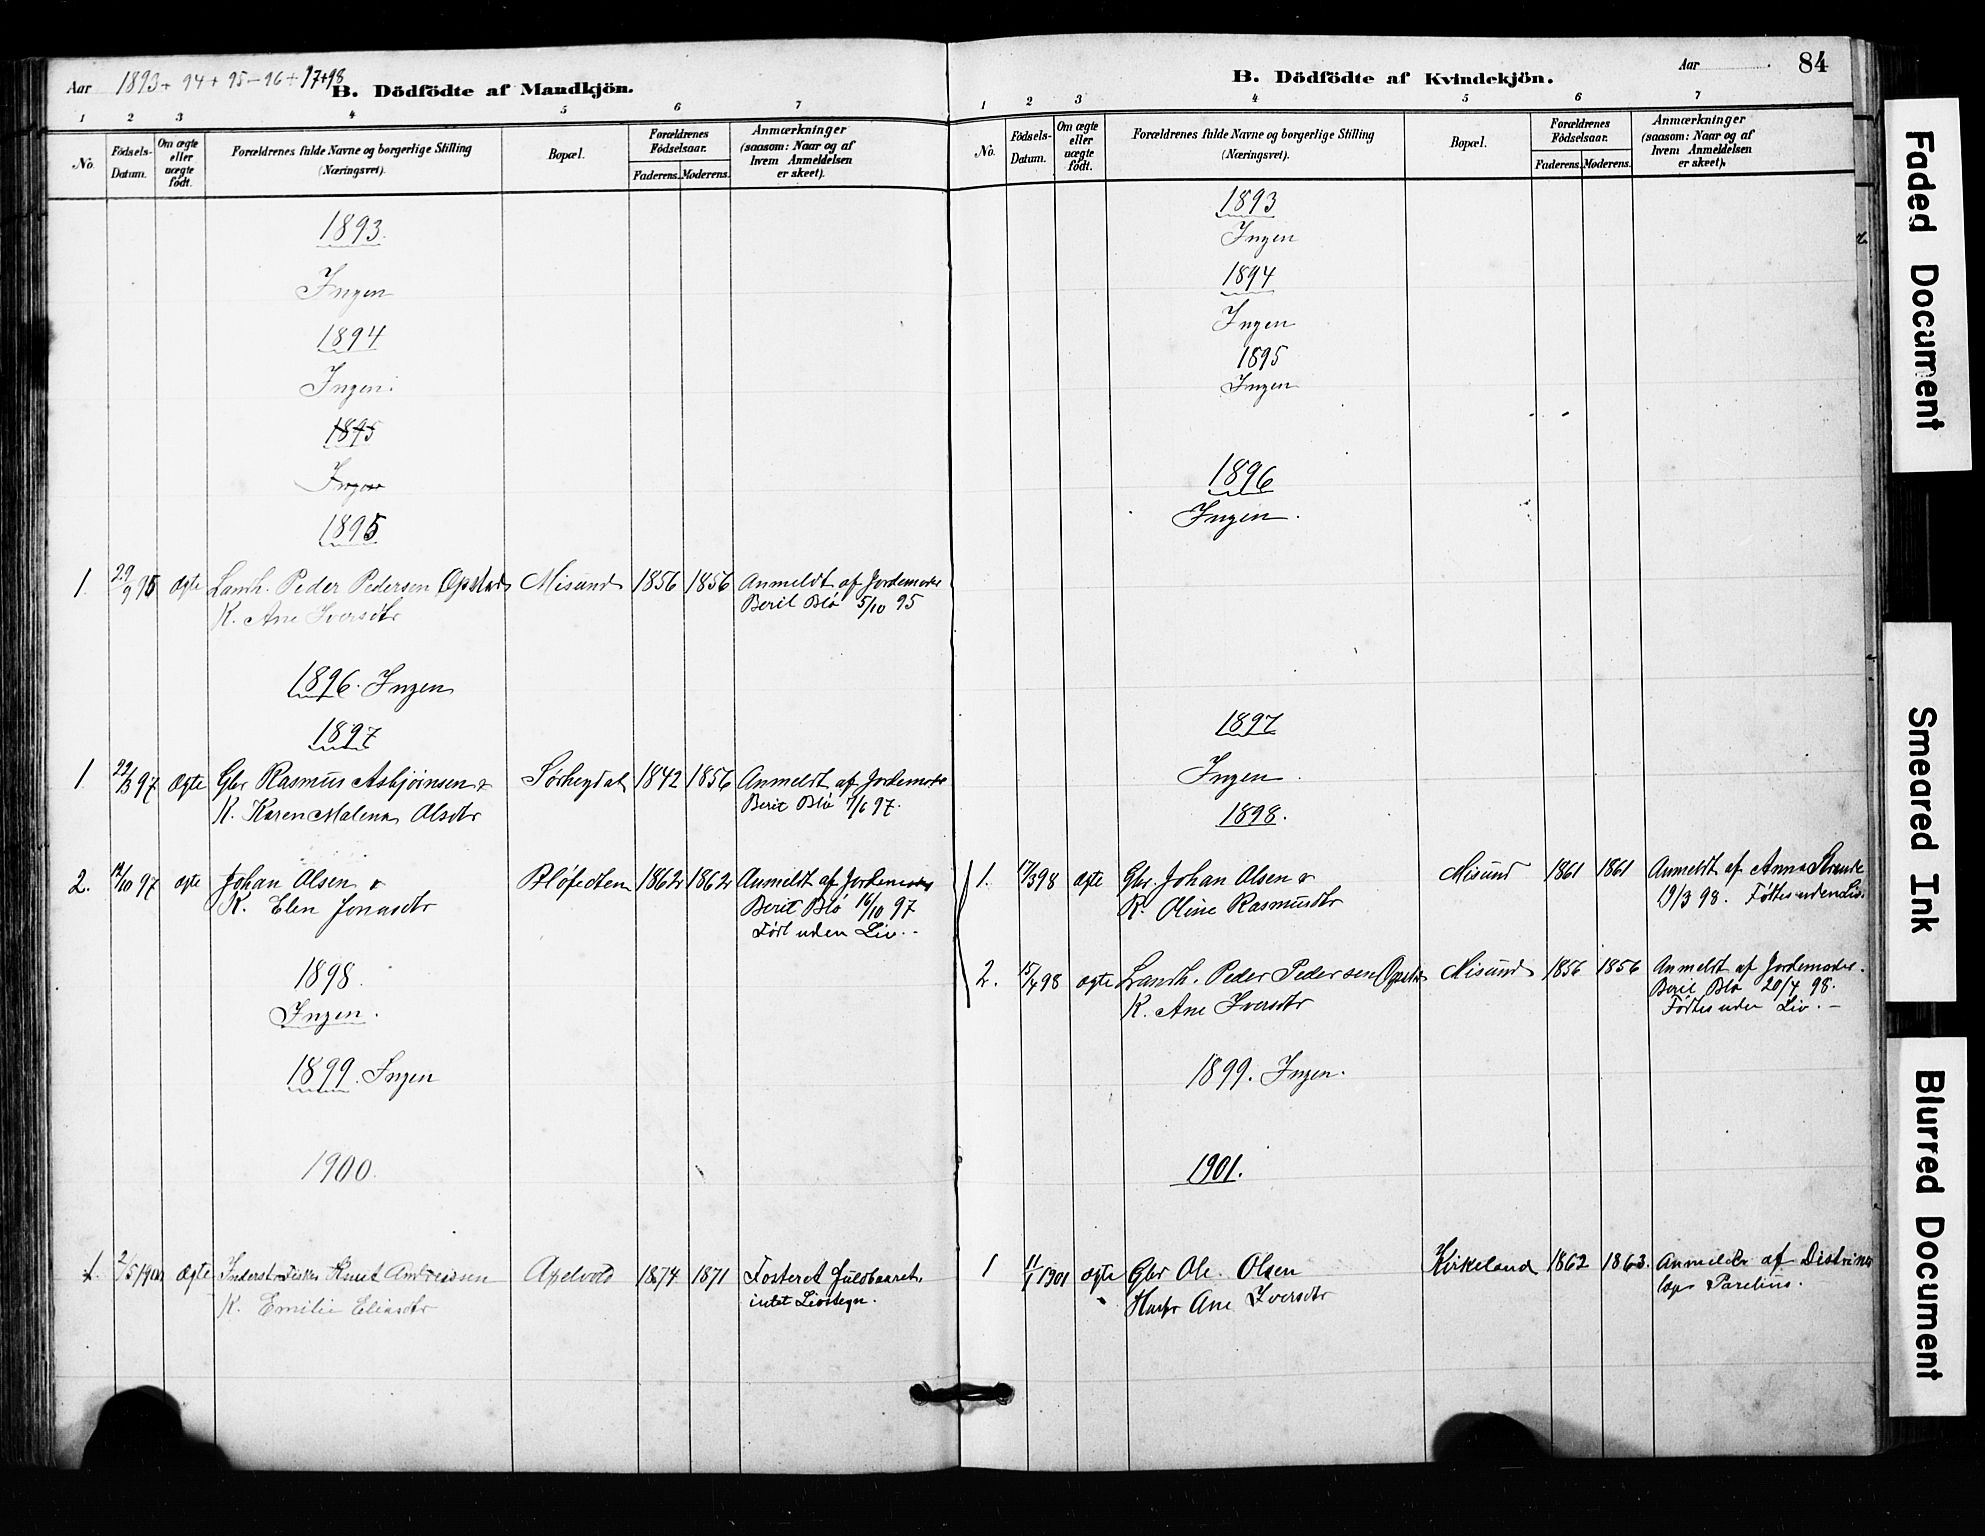 Aar 1893 + 94 + 95 - 96 + 97 + 98
B. Dödfödte af Mandkjön.
1 2 3 4 5 6 7
No.
Födsels-Datum.
Om ægte eller uægte födt.
Forældrenes fulde Navne og borgerlige Stilling (Næringsvei).
Bopæl.
Forældrenes Födselsaar.
Faderens. Moderens.
Anmærkninger (saasom: Naar og af hvem Anmeldelsen er skeet).
1893.
Ingen
1894
Ingen.
1895
Ingen
1895
1. 29/9 95 ægte Landh. Peder Pedersen Opstad Misund 1856 1856 Anmeldt af Jordemoder
K. Ane Iversdtr Berit Blø 5/10 95
1896. Ingen
1897
1 22/3 97 ægte Gbr Rasmus Asbjørnsen & Sørheydal 1842 1856 Anmeldt af Jordemoder
K. Karen Malena Olsdtr Berit Blø 7/6 97.
2. 14/10 97 ægte Johan Olsen & 1862 1862 Anmeldt af Jordemoder
K. Elen Jonasdtr Berit Blø 16/10 97
Født uden Liv.
1898.
Ingen.
1899. Ingen
1900.
1. 2/5 1900 ægte Knut Andreassen 1874 1871 Fosteret fuldbaaret,
K. Emilie Eliasdtr intet Livstegn.
Aar 84
B. Dödfödte af Kvindekjön.
1 2 3 4 5 6 7
No.
Födsels-Datum.
Om ægte eller uægte födt.
Forældrenes fulde Navne og borgerlige Stilling (Næringsvei).
Bopæl.
Forældrenes Födselsaar.
Faderens. Moderens.
Anmærkninger (saasom: Naar og af hvem Anmeldelsen er skeet).
1893
Ingen
1894
Ingen
1895
Ingen
1896
Ingen.
1897
Ingen.
1898.
1. 17/3 98 ægte Gbr. Johan Olsen & Misund 1861 1861 Anmeldt af Anna Strande
K. Oline Rasmusdtr 19/3 98. Fødtes uden Liv.
2. 15/4 98 ægte Landh. Peder Pedersen Opstad Misund 1856 1856 Anmeldt af Jordemoder.
K. Ane Iversdtr Berit Blø 20/4 98.
Fødtes uden Liv.
1899. Ingen.
1901.
1 11/1 1901 ægte Gbr Ole Olsen Kirkeland 1862 1863. Anmeldt af
Ane Iversdtr Parelius.
Faded Document
Smeared Ink
Blurred Document